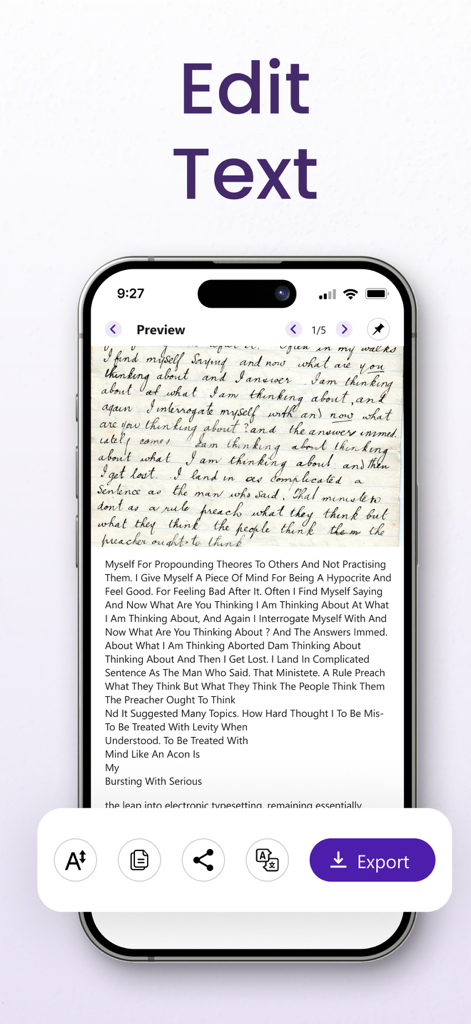 Edit
Text
9:27
Preview
1/5
often in my walks
I find myself saying and now what are you
thinking about and I answer I am thinking
about at what I am thinking about, and
again I interrogate myself with and now what
are you thinking about? and the answers immed.
iately comes I am thinking about thinking
about what I am thinking about and then
I get lost. I land in as complicated a
sentence as the man who said. That ministers
dont as a rule preach what they think but
what they think the people think them the
preacher ought to think
Myself For Propounding Theores To Others And Not Practising
Them. I Give Myself A Piece Of Mind For Being A Hypocrite And
Feel Good. For Feeling Bad After It. Often I Find Myself Saying
And Now What Are You Thinking I Am Thinking About At What
I Am Thinking About, And Again I Interrogate Myself With And
Now What Are You Thinking About ? And The Answers Immed.
About What I Am Thinking Aborted Dam Thinking About
Thinking About And Then I Get Lost. I Land In Complicated
Sentence As The Man Who Said. That Ministete. A Rule Preach
What They Think But What They Think The People Think Them
The Preacher Ought To Think
Nd It Suggested Many Topics. How Hard Thought I To Be Mis-
To Be Treated With Levity When
Understood. To Be Treated With
Mind Like An Acon Is
My
Bursting With Serious
the leap into electronic typesetting, remaining essentially
A
A 文
Export